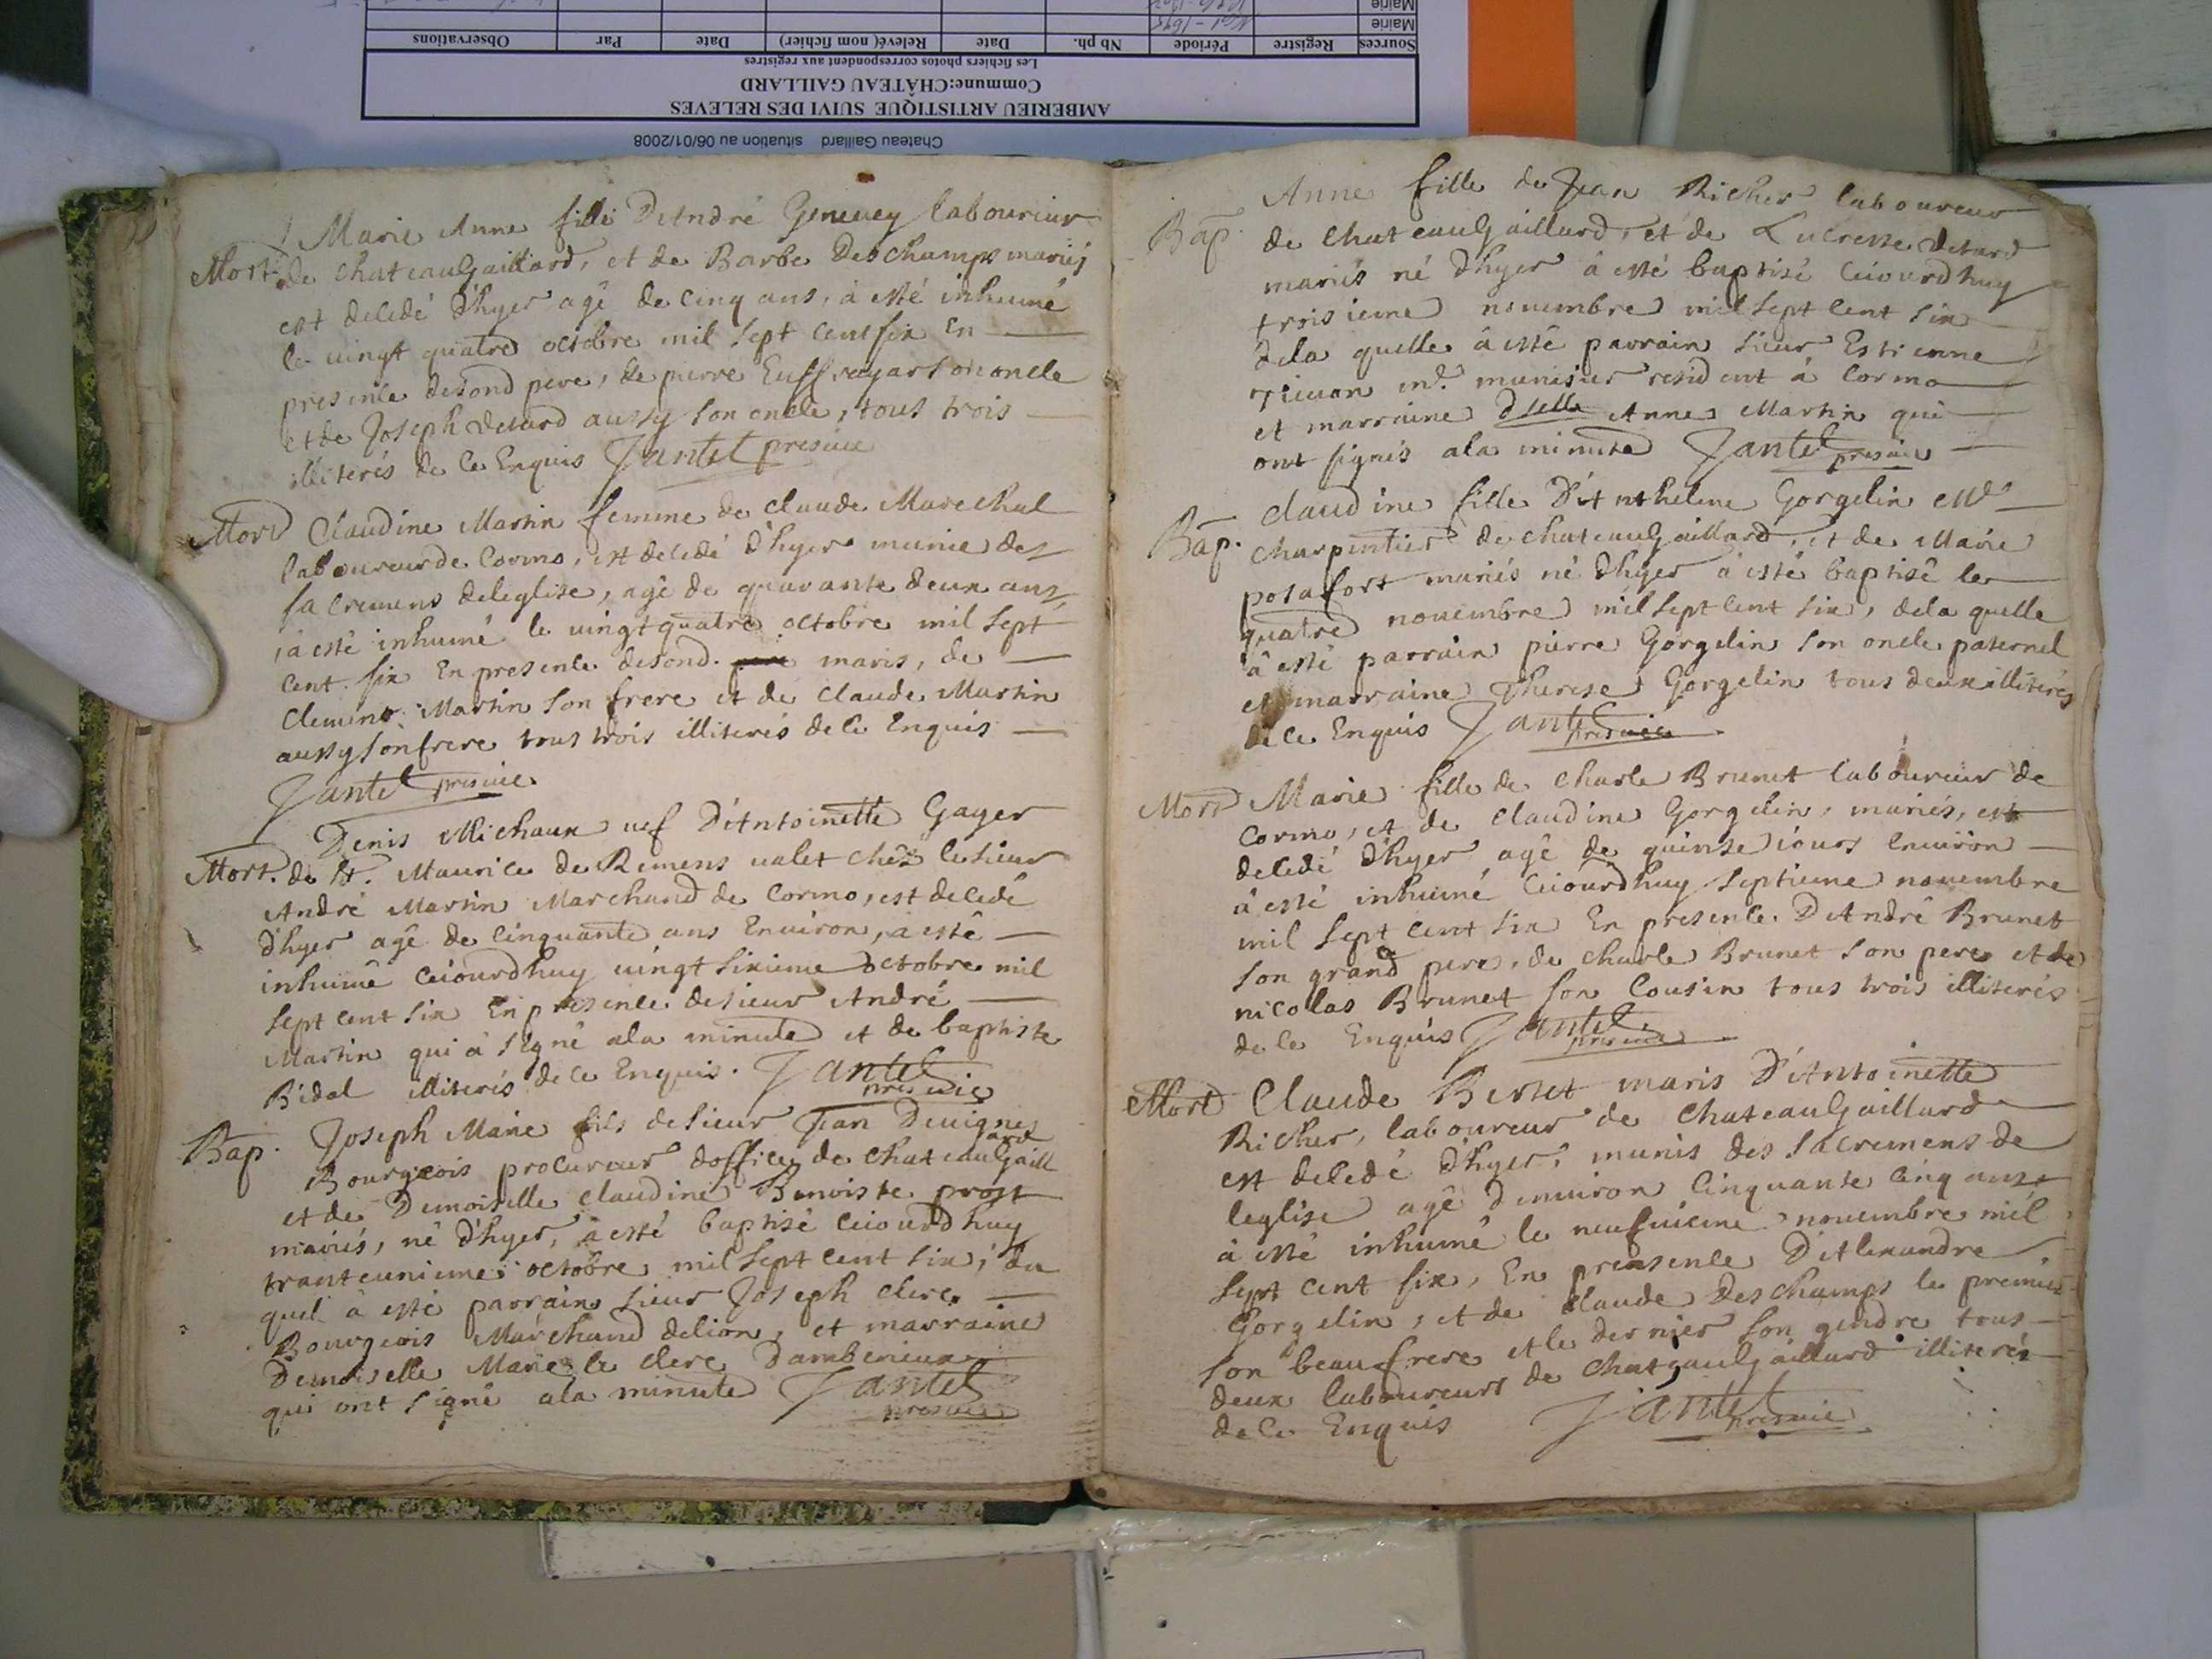 Mairie
Mairie
Sources Registre Période Nb ph. Date Relevé( nom fichier) Date Par Observations
Les fichiers photos correspondent aux registres
Commune:CHÂTEAU GAILLARD
AMBERIEU ARTISTIQUE SUIVI DES RELEVES
Chateau Gaillard situation au 06/01/2008
Marie Anne fille D'André Geneuey laboureiur
Mort. de chateauGaillard, et de Barbe Deschamps mariés
est decedé d'hyer agê de cinq ans, à esté inhumé
le uingt quatre octobre mil sept cent six En
presence desond pere, de pierre Euffrayar son oncle
et de Joseph Detard aussy son oncle, tous trois
illiterés de ce Enquis Jantet presuic
Mort Claudine Martin femme de claude Marechal
laboureur de Cormo, est decedé d'hyer munie des
sacremens deleglise, agê de quarante deux ans,
à esté inhumé le uingtquatre octobre mil sept
cent six En presence desond. maris, de
Clement Martin son frere et de Claude Martin
aussy son frere tous trois illiterés de ce Enquis
Jantet presuic
Denis Michaux uef D'Antoinette Gayer
Mort. de St. Maurice de Remens ualet chêz le sieur
André Martin Marchand de Cormo, est decedé
d'hyer agê de Cinquante ans Enuiron, à estê
inhumê ceiourdhuy uingt sixieme octobre mil
sept cent six En presence desieur André
Martin qui à signê ala minute et de baptiste
Bidal illiterés de ce Enquis. Jantet
presuic
Bap. Joseph Marie fils desieur Jean Deuignes
Bourgeois procureur doffice de chateauGaill
ard
et de Demoiselle claudine Benoiste prost
mariés, nê d'hyer, à esté baptisé ceiourdhuy
tranteunieme octobre mil sept cent six, du
quel à esté parrain sieur Joseph clerc
Bourgeois Marchand delion, et marraine
Demoiselle Marie le clerc Damberieux
qui ont signê ala minute Jantet
presuic
Anne fille de Jean Richer laboureur
Bap. de chateauGaillard, et de Lucresse Detard
mariés né d'hyer à esté baptisé ceiourdhuy
troisieme nouembre mil sept cent six
dela quelle à estê parrain sieur Estienne
md. resident à Cormo
et marraine dselle Anne Martin qui
ont signés ala minute Jantet presuic
Claudine fille D'Anthelme Gorgelin Md
Bap. charpentier de chateauGaillard, et de Marie
potafort mariés né d'hyer à esté baptisé le
quatre nouembre mil sept cent six, dela quelle
à esté parrain pierre Gorgelin son oncle paternel
et marraine Therese Gorgelin tous deux illiterés
de ce Enquis Jantet
presuic
Mort Marie fille de Charle Brunet laboureur de
Cormo, et de Claudine Gorgelin, mariés, est
decedé d'hyer agê de quinse iours Enuiron
à esté inhumé ceiourdhuy septieme nouembre
mil sept cent six En presence D'André Brunet
son grand pere, de charle Brunet son pere et de
nicolas Brunet son Cousin tous trois illiterés
de ce Enquis Jantet
presuic
Mort Claude Bertet maris D'Antoinette
Richer, laboureur de chateauGaillard
est decedé d'hyer, munis des sacremens de
leglise agê denuiron Cinquante Cinq ans
à esté inhumé le neufuieme nouembre mil
sept cent six, En presence D'Alexandre
Gorgelin, et de claude Deschamps le premier
son beaufrere et le dernier son gendre tous
deux laboureurs de chateauGaillard illiterés
de ce Enquis Jantet presuic